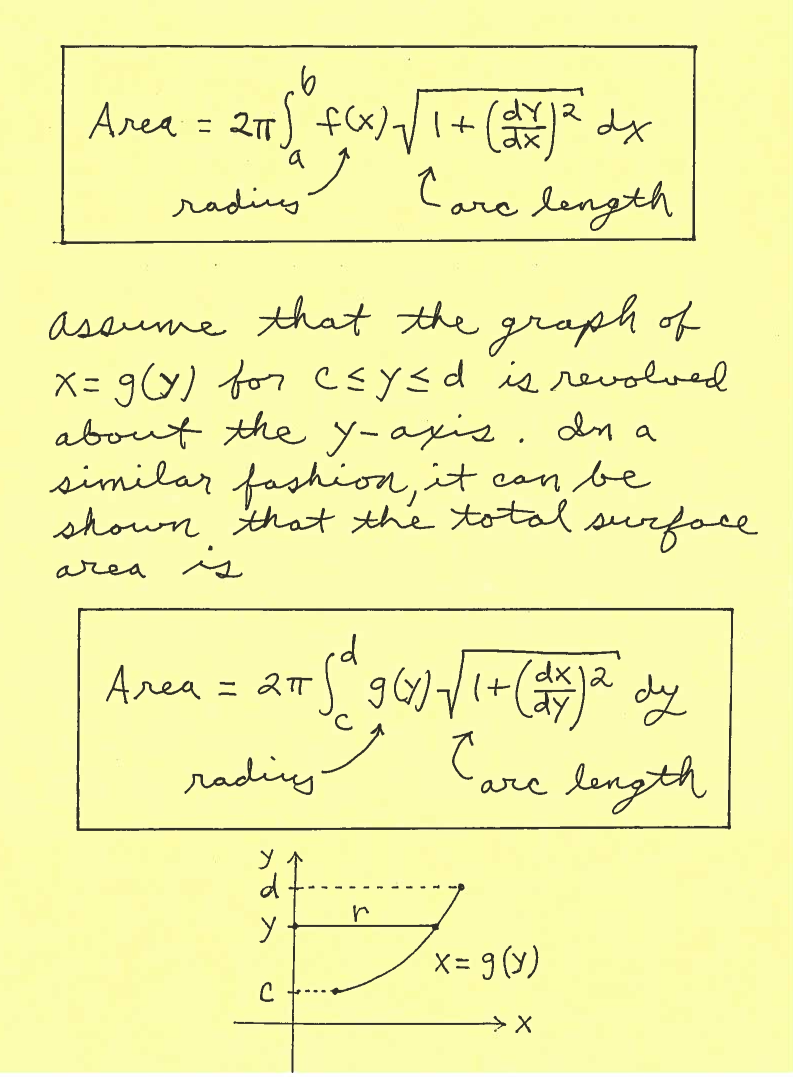 Area = 2π ∫_a^b f(x) √(1 + (dy/dx)^2) dx
radius arc length
Assume that the graph of
x = g(y) for c ≤ y ≤ d is revolved
about the y-axis. In a
similar fashion, it can be
shown that the total surface
area is
Area = 2π ∫_c^d g(y) √(1 + (dx/dy)^2) dy
radius arc length
y
d
y r
x = g(y)
c
x